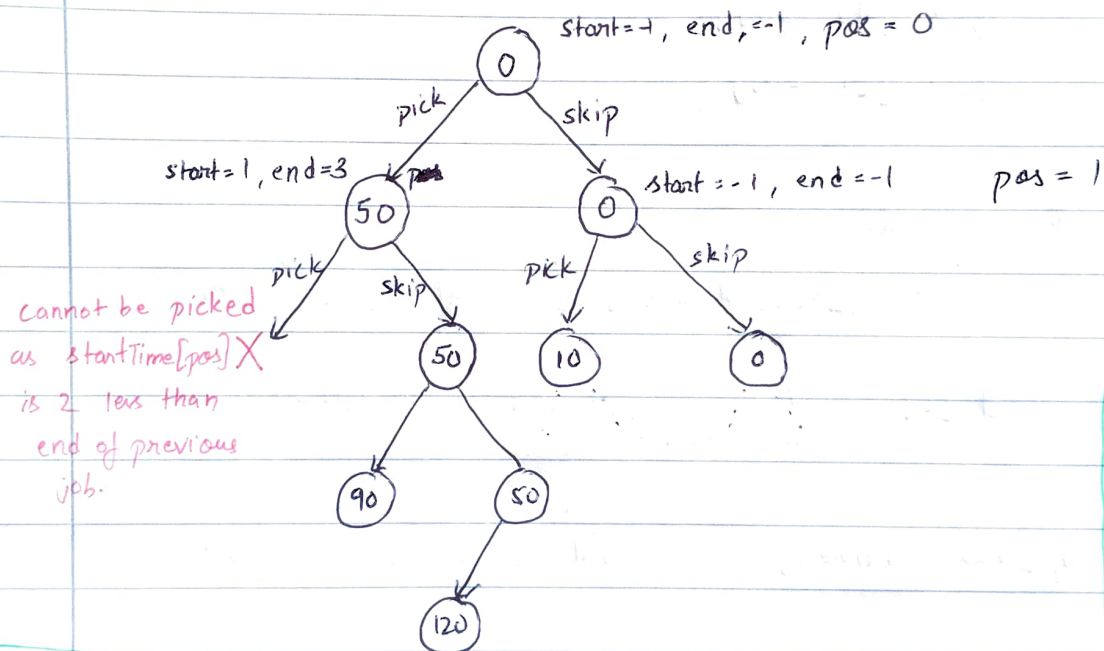 start=-1, end,=-1, pos = 0
0
pick
skip
start=1, end=3
50
0
start=-1, end=-1
pos = 1
pick
skip
pick
skip
cannot be picked
as startTime[pos] X
is 2 less than
end of previous
job.
50
10
0
90
50
120